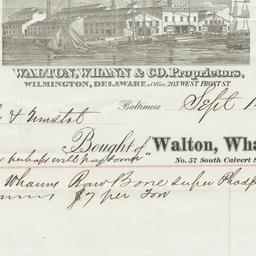 WALTON, WHANN & CO. Proprietors,
WILMINGTON, DELAWARE Office, 203 WEST FRONT ST
Baltimore Sept 1
& Umstot
Bought of Walton, Wha
perhaps will pay sooner"
No. 57 South Calvert S
Whanns Raw Bone Super Phosp
$7 per Ton